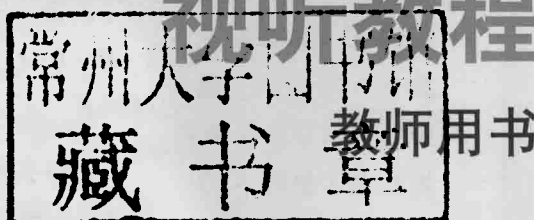 视听教程
常州大学图书馆
藏书章
教师用书